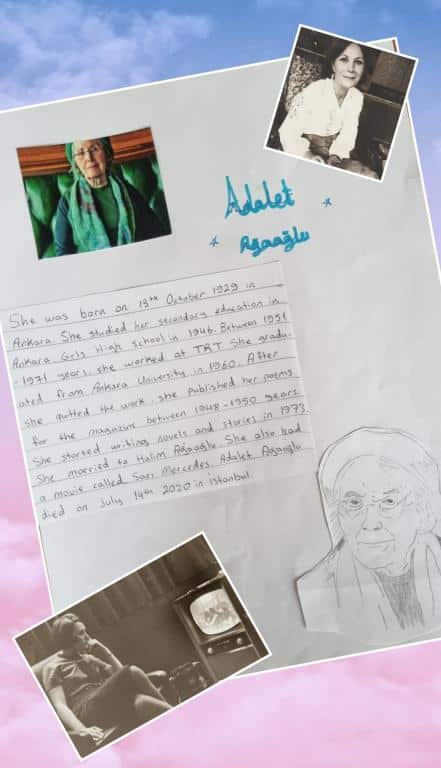 Adalet
Ağaoğlu
She was born on 13th October 1929 in
Ankara She studied her secondary education in
Ankara Girls High school in 1946. Between 1951
-1971 years, she worked at TRT She gradu-
ated from Ankara University in 1960. After
she quitted the work, she published her poems
for the magazine between 1948-1950 years.
She started writing novels and stories in 1973.
She married to Halim Ağaoğlu She also had
a movie called Sarı Mercedes. Adalet Ağaoğlu
died on July 14th 2020 in istanbul.